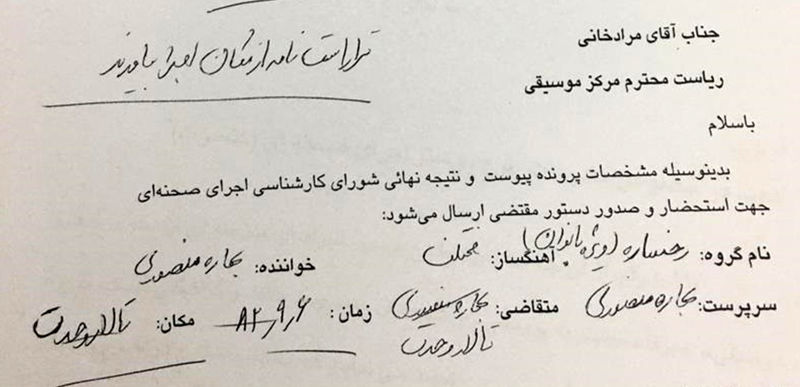 جناب آقای مرادخانی
قرار است نامه از مکان اجرا بیاورند
ریاست محترم مرکز موسیقی
باسلام
بدینوسیله مشخصات پرونده پیوست و نتیجه نهائی شورای کارشناسی اجرای صحنه‌ای
جهت استحضار و صدور دستور مقتضی ارسال می‌شود:
نام گروه: رخساره (ویژه بانوان) آهنگساز: محلی خواننده: بهاره منصوری
سرپرست: بهاره منصوری متقاضی: بهاره منصوری زمان: ۸۲٫۹٫۶ مکان: تالار وحدت
تالار وحدت